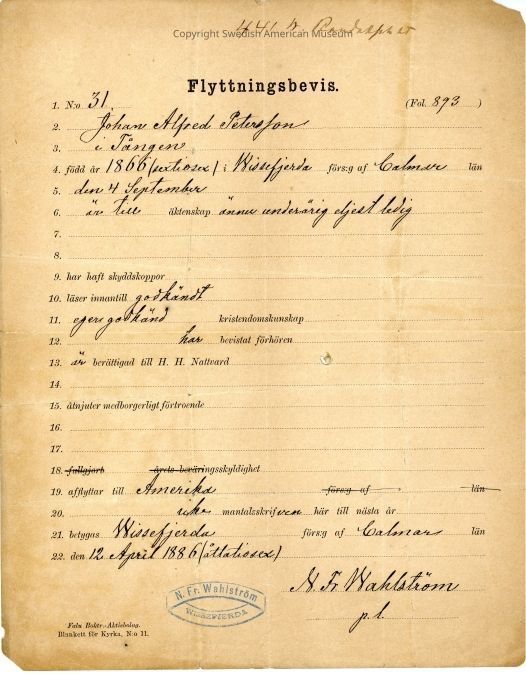 441 N
Copyright Swedish American Museum
Flyttningsbevis.
1. N:o 31. (Fol. 893)
2. Johan Alfred Petersson
3. i Tången
4. född år 1866 (sextiosex) i Wissefjerda förs:g af Calmar län
5. den 4 September
6. är till äktenskap ännu underårig eljest ledig
7.
8.
9. har haft skyddskoppor
10. läser innantill godkändt
11. eger godkänd kristendomskunskap
12. har bevistat förhören
13. är berättigad till H. H. Nattvard
14.
15. åtnjuter medborgerligt förtroende
16.
17.
18. fullgjort årets beväringsskyldighet
19. afflyttar till Amerika förs:g af län
20. icke mantalsskrifven här till nästa år
21. betygas Wissefjerda förs:g af Calmar län
22. den 12 April 1886 (åttatiosex)
N. Fr. Wahlström
p. l.
N. Fr. Wahlström
WISSEFJERDA
Falu Boktr.-Aktiebolag.
Blankett för Kyrka, N:o 11.